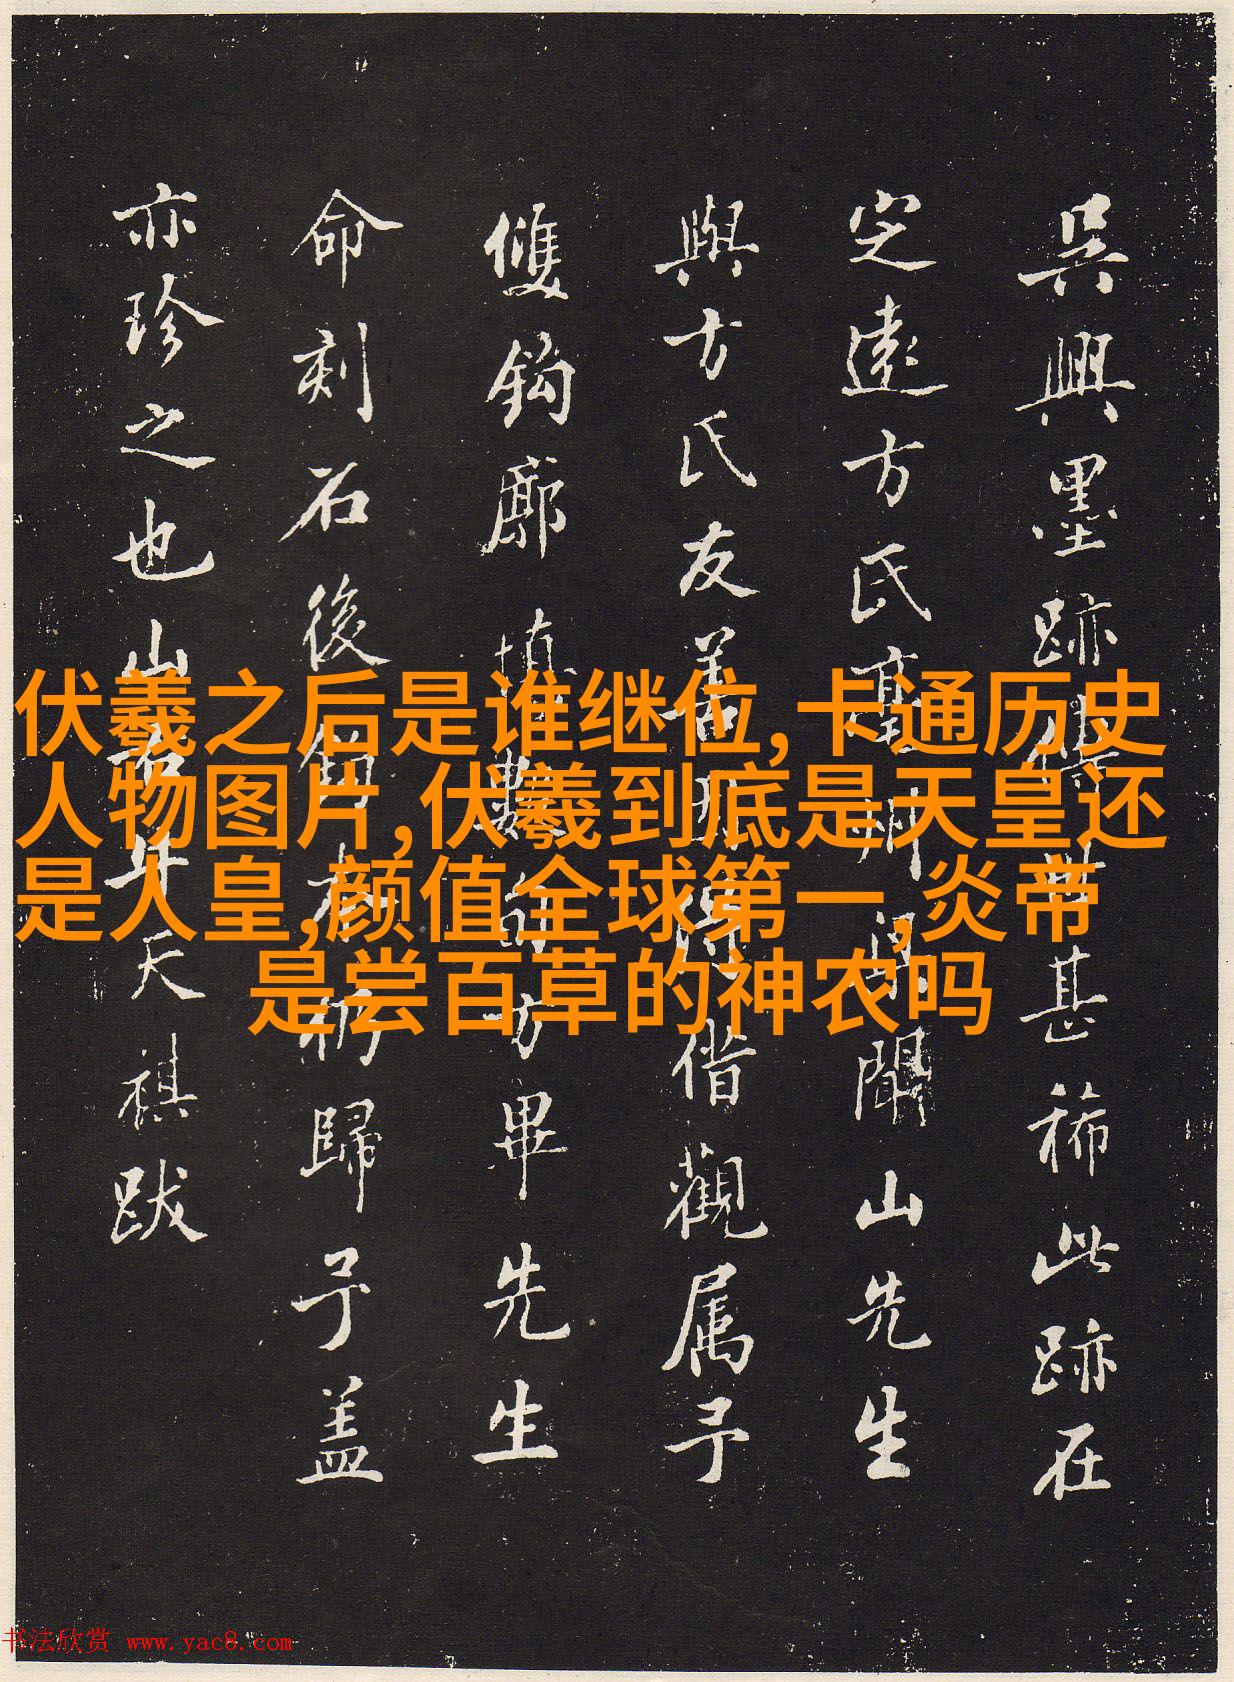 吳興墨跡傳世甚稀此跡在
定遠方氏聞山先生
與方氏友善借觀属予
雙鈎廓填數方畢先生
命刻石後仍歸予蓋
亦珍之也山天祺跋
伏羲之后是谁继位,卡通历史
人物图片,伏羲到底是天皇还
是人皇,颜值全球第一,炎帝
是尝百草的神农吗
书法欣赏 www.yac8.com